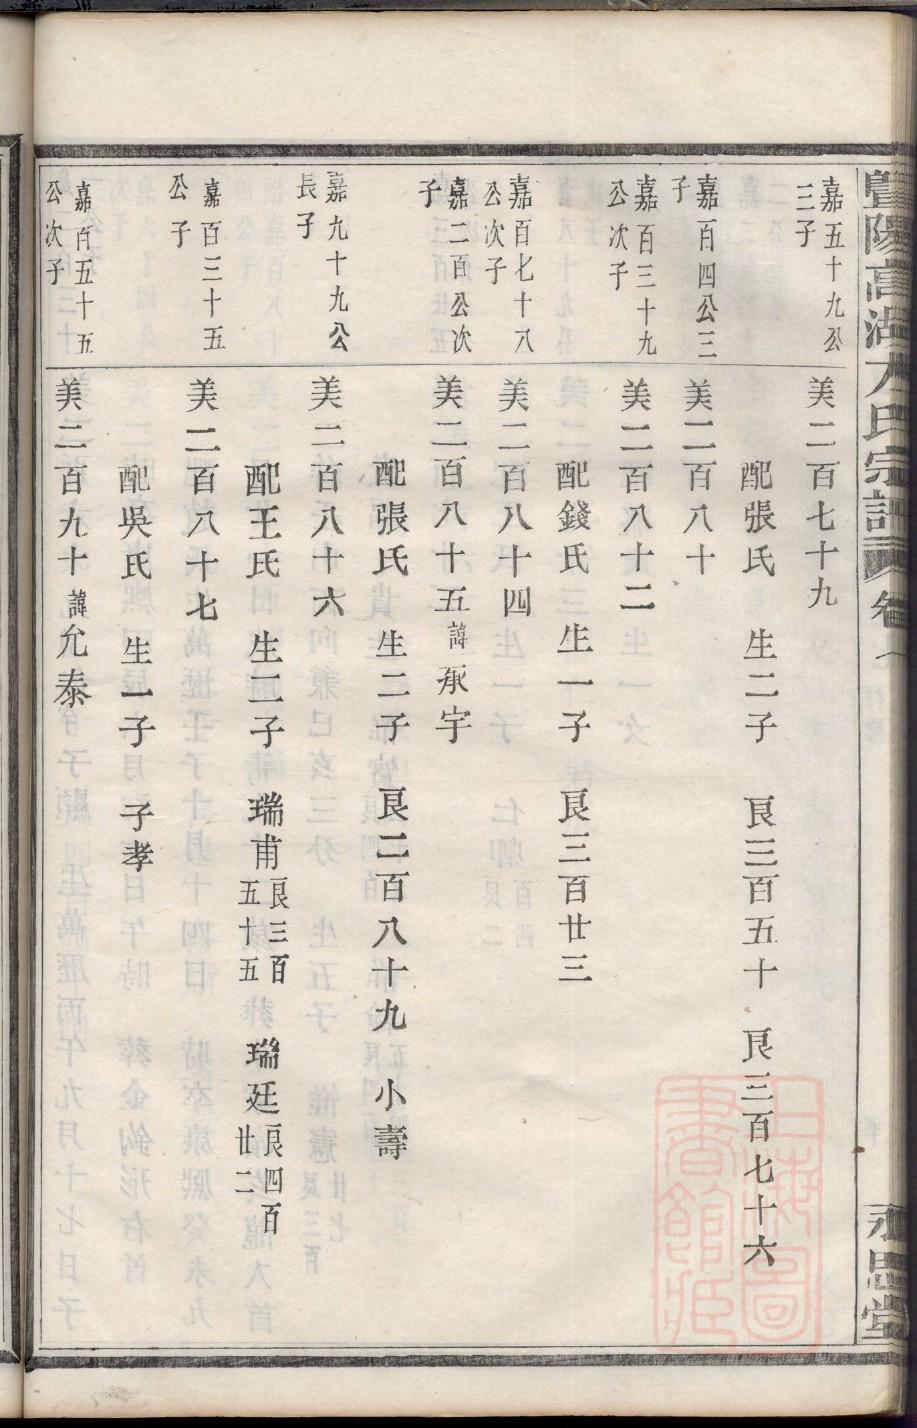 暨陽高湖氏宗譜
卷
永思堂
嘉五十九公
三子
美二百七十九
配張氏 生二子 艮三百五十 艮三百七十六
嘉百四公三
子
美二百八十
嘉百三十九
公次子
美二百八十二
配錢氏 生一子 艮三百廿三
嘉百七十八
公次子
美二百八十四
嘉二百公次
子
美二百八十五諱承宇
配張氏 生二子 艮二百八十九 小壽
嘉九十九公
長子
美二百八十六
配王氏 生二子 瑞甫艮三百五十五 瑞廷艮四百廿二
嘉百三十五
公子
美二百八十七
配吳氏 生一子 子孝
嘉百五十五
公次子
美二百九十諱允泰